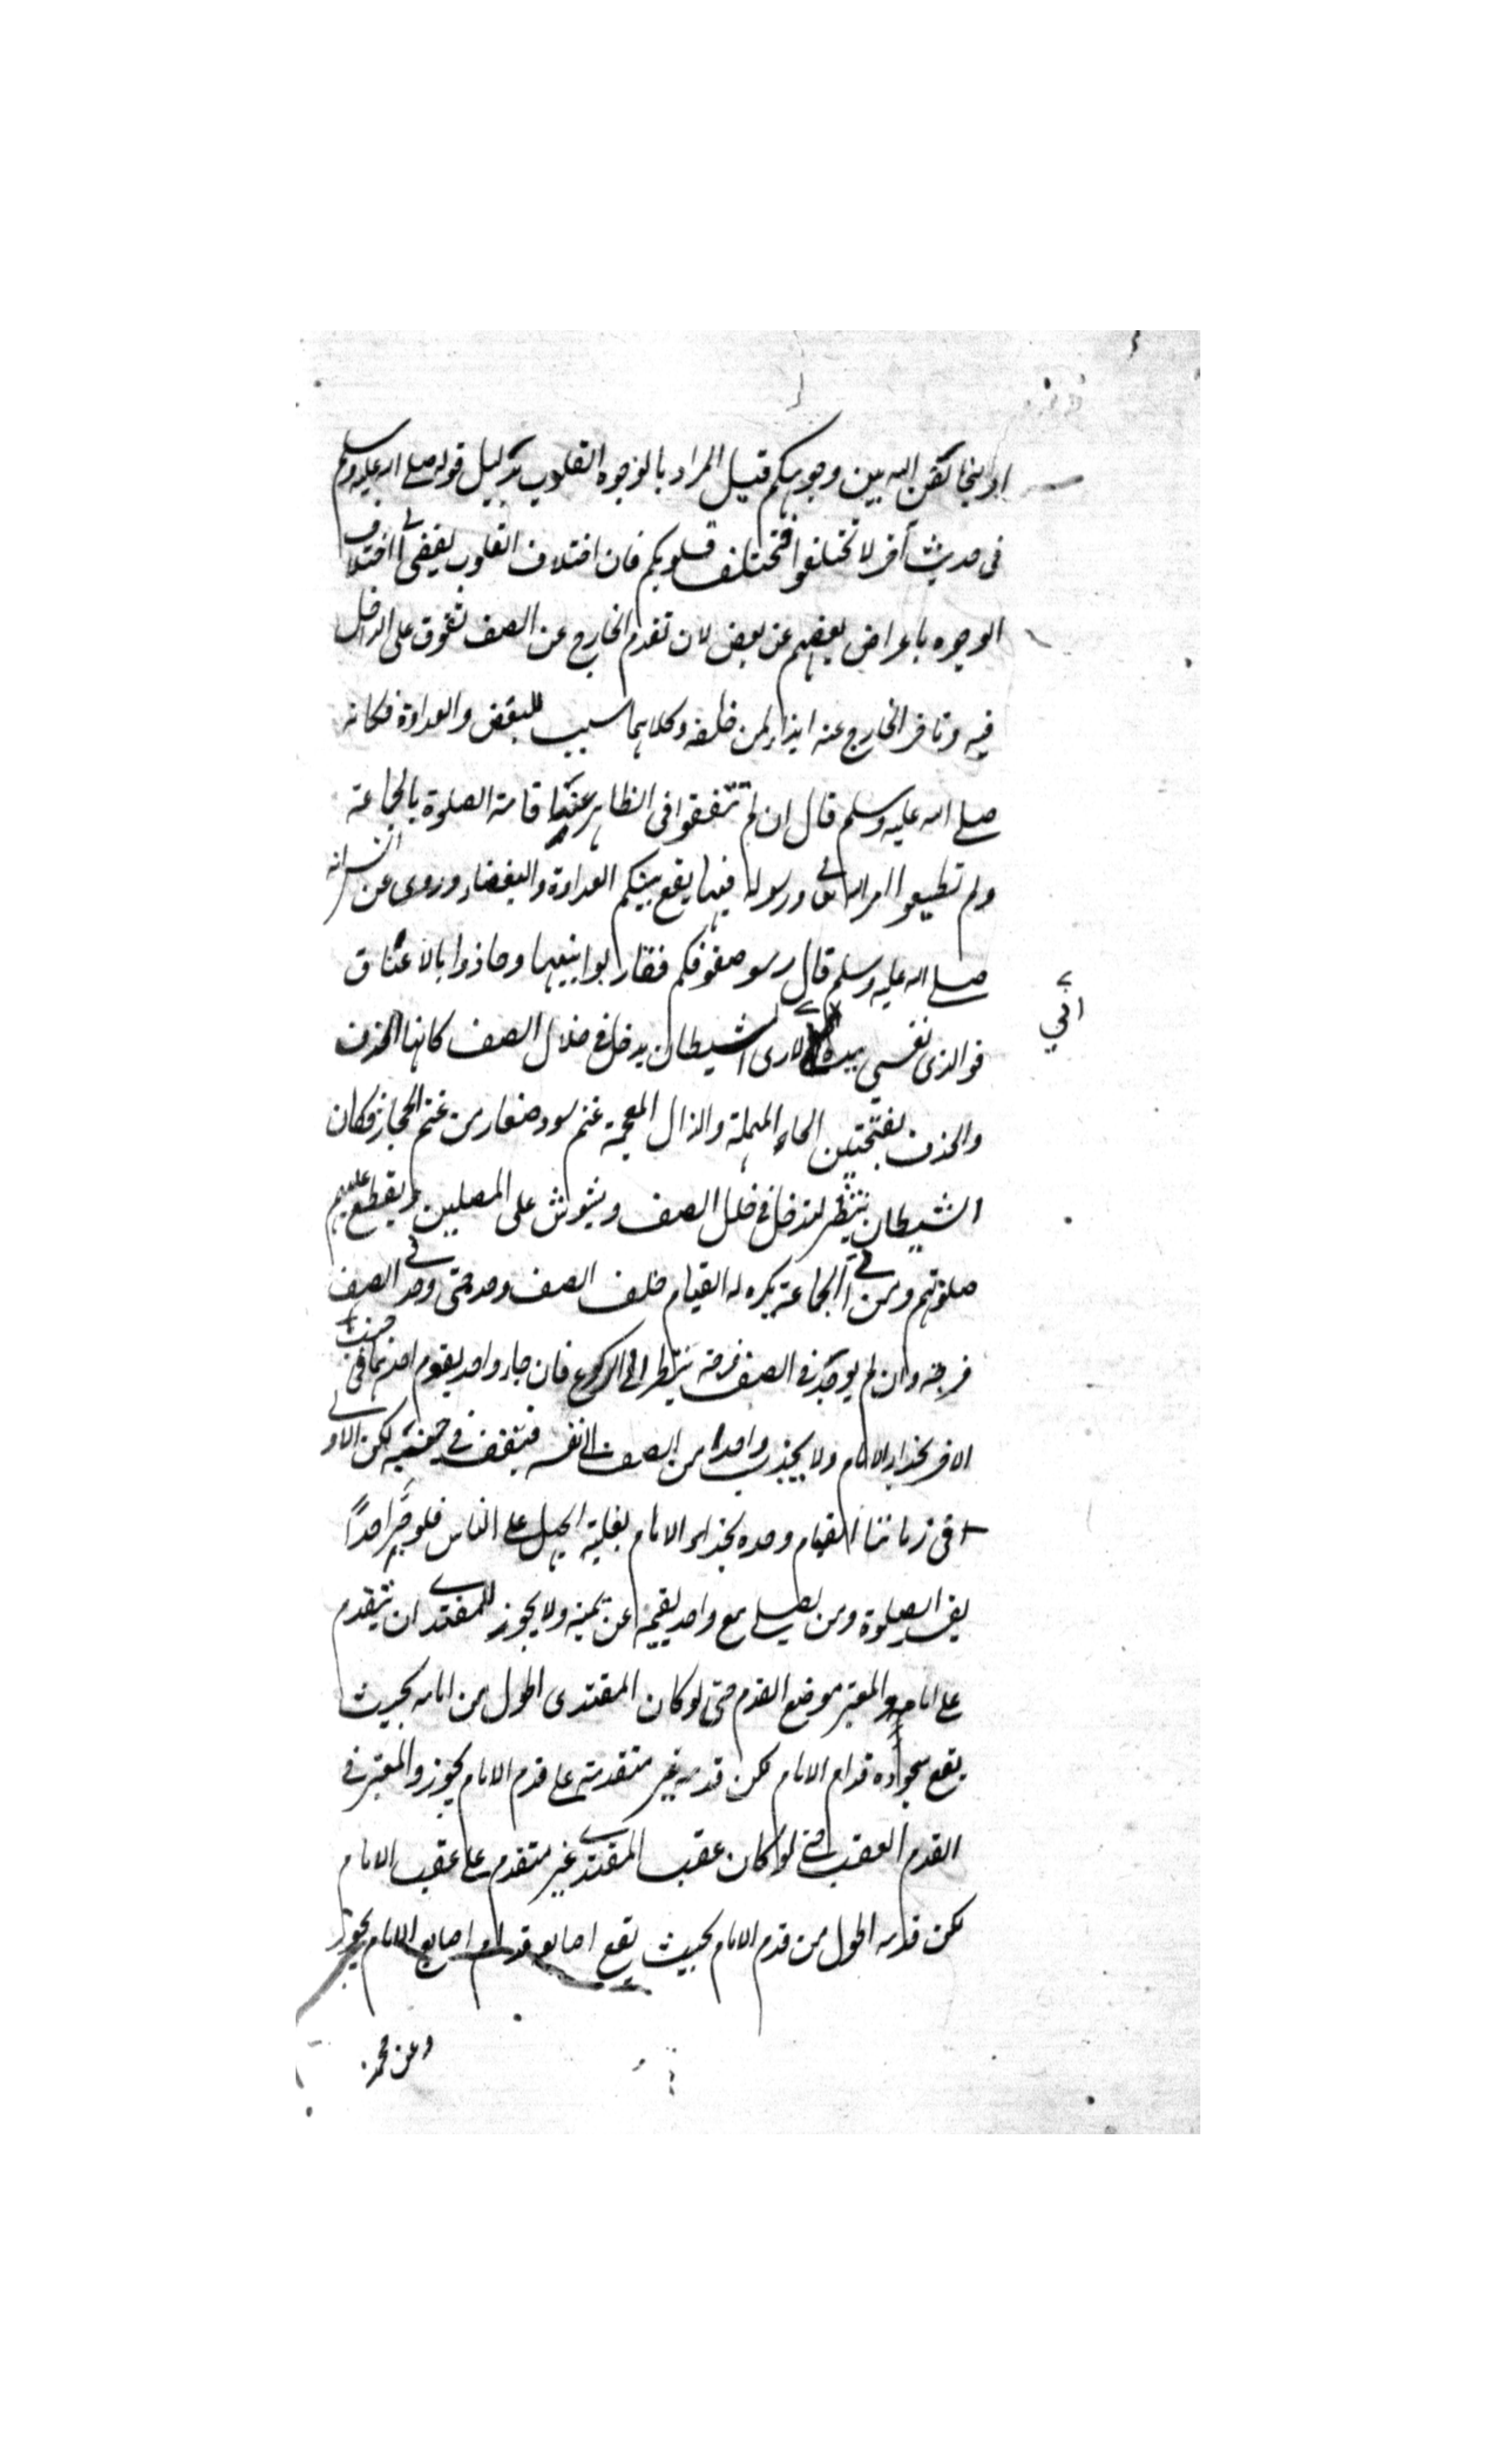 او ليخالفن الله بين وجوهكم قيل المراد بالوجوه القلوب بدليل قوله صلى الله عليه وسلم
فى حديث آخر لا تختلفوا فتختلف قلوبكم فان اختلاف القلوب يفضى الى اختلاف
الوجوه باعراض بعضهم عن بعض لان تقدم الخارج عن الصف تفوق على الداخل
فيه وتاخر الخارج عنه ايذاء لمن خلفه وكلاهما سبب للبغض والعداوة فكانه
صلى الله عليه وسلم قال ان لم تتفقوا فى الظاهر عند اقامة الصلوة بالجماعة
ولم تطيعوا امر الله تعالى ورسوله فيها يقع بينكم العداوة والبغضاء وروى عن انس انه
صلى الله عليه وسلم قال رسو صفوفكم فقاربوا بينهما وحاذوا بالاعناق
انى
فوالذى نفسي بيده لارى الشيطان يدخل فى خلال الصف كانها الحذف
والحذف بفتحتين الحاء المهملة والذال المعجمة غنم سود صغار من غنم الحجاز فكان
الشيطان ينتظر ليدخل فى خلل الصف ويشوش على المصلين ويقطع عليهم
صلوتهم ومن اتى الجماعة يكره له القيام خلف الصف وحده متى وجد فى الصف
فرجة وان لم يوجد فى الصف فرجة ينتظر الى الركوع فان جاء واحد يقوم احدهما فى جنب
الاخر بحذاء الامام ولا يجذب واحدا من الصف الى نفسه فيقف فى جنبه لكن الاولى
فى زماننا القيام وحده بحذاء الامام لغلبة الجهل على الناس فلو جر احدًا
يفسد الصلوة ومن يصلى مع واحد يقيمه عن يمينه ولا يجوز للمقتدى ان يتقدم
على امامه والمعتبر موضع القدم حتى لو كان المقتدى اطول من امامه بحيث
يقع سجوده قدام الامام لكن قدمه غير متقدمة على قدم الامام يجوز والمعتبر فى
القدم العقب حتى لو كان عقب المقتدى غير متقدم على عقب الامام
لكن قدمه اطول من قدم الامام بحيث يقع اصابعه قدام اصابع الامام يجوز
وعن محمد